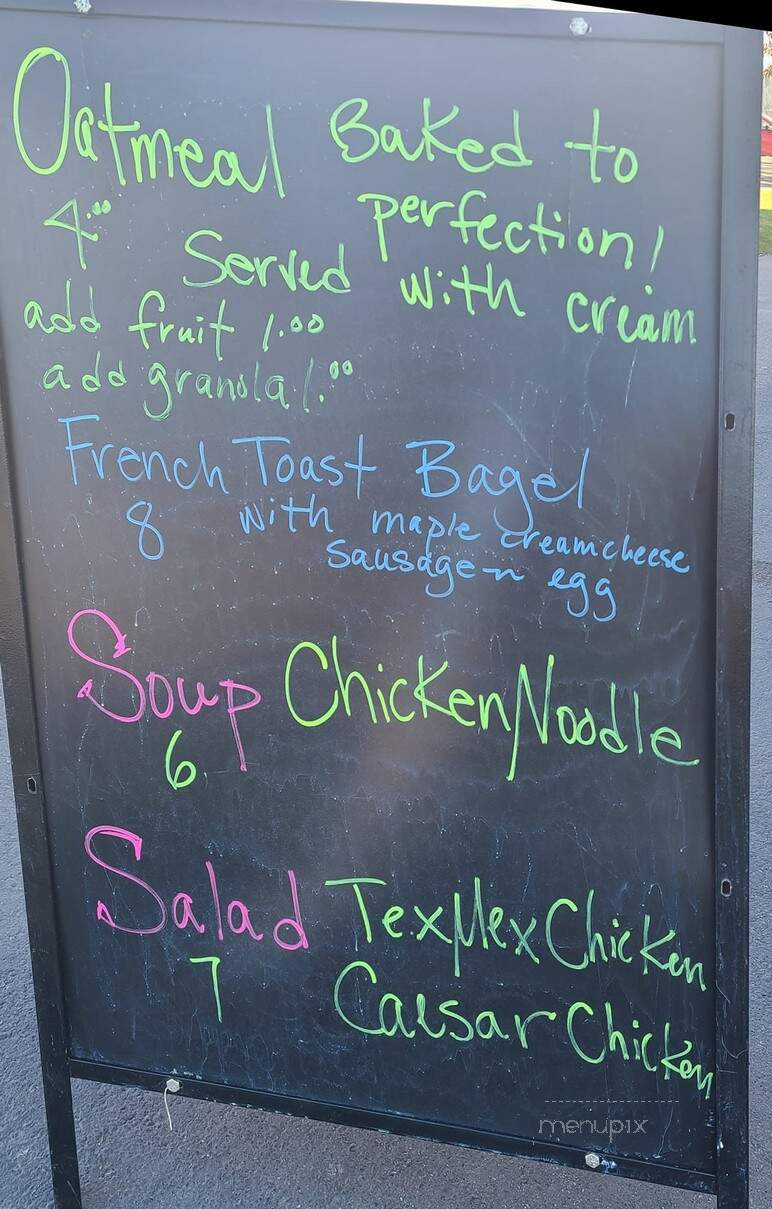 Oatmeal Baked to
4.00 perfection!
Served with cream
add fruit 1.00
add granola 1.00
French Toast Bagel
8 with maple creamcheese
sausage n egg
Soup Chicken Noodle
6
Salad TexMex Chicken
7 Caesar Chicken
menupix